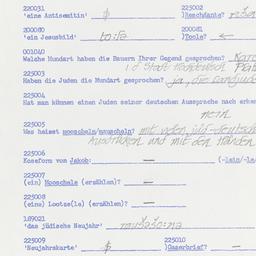 220031 223002
'eine Antisemitin' $ )Rescháante?
200080 200081
'ein Jesusbild' )Toole? ←
001040
Welche Mundart haben die Bauern Ihrer Gegend gesprochen?
225003
Haben die Juden die Mundart gesprochen? ja, die Landjude
225004
Hat man können einen Juden seiner deutschen Aussprache nach erken
nein
225005
Was heisst mooscheln/mauscheln? mit vielen jüd-deutsche
Ausdrücken und mit den Händen
225006
Koseform von Jakob: — (-lein/-le
225007
(ein) Mooschale (erzählen)? —
225008
(eine) Lootze(la) (erzählen)? —
189021
'das jüdische Neujahr'
225009 225010
'Neujahrskarte' $ )Gaserbrief? —